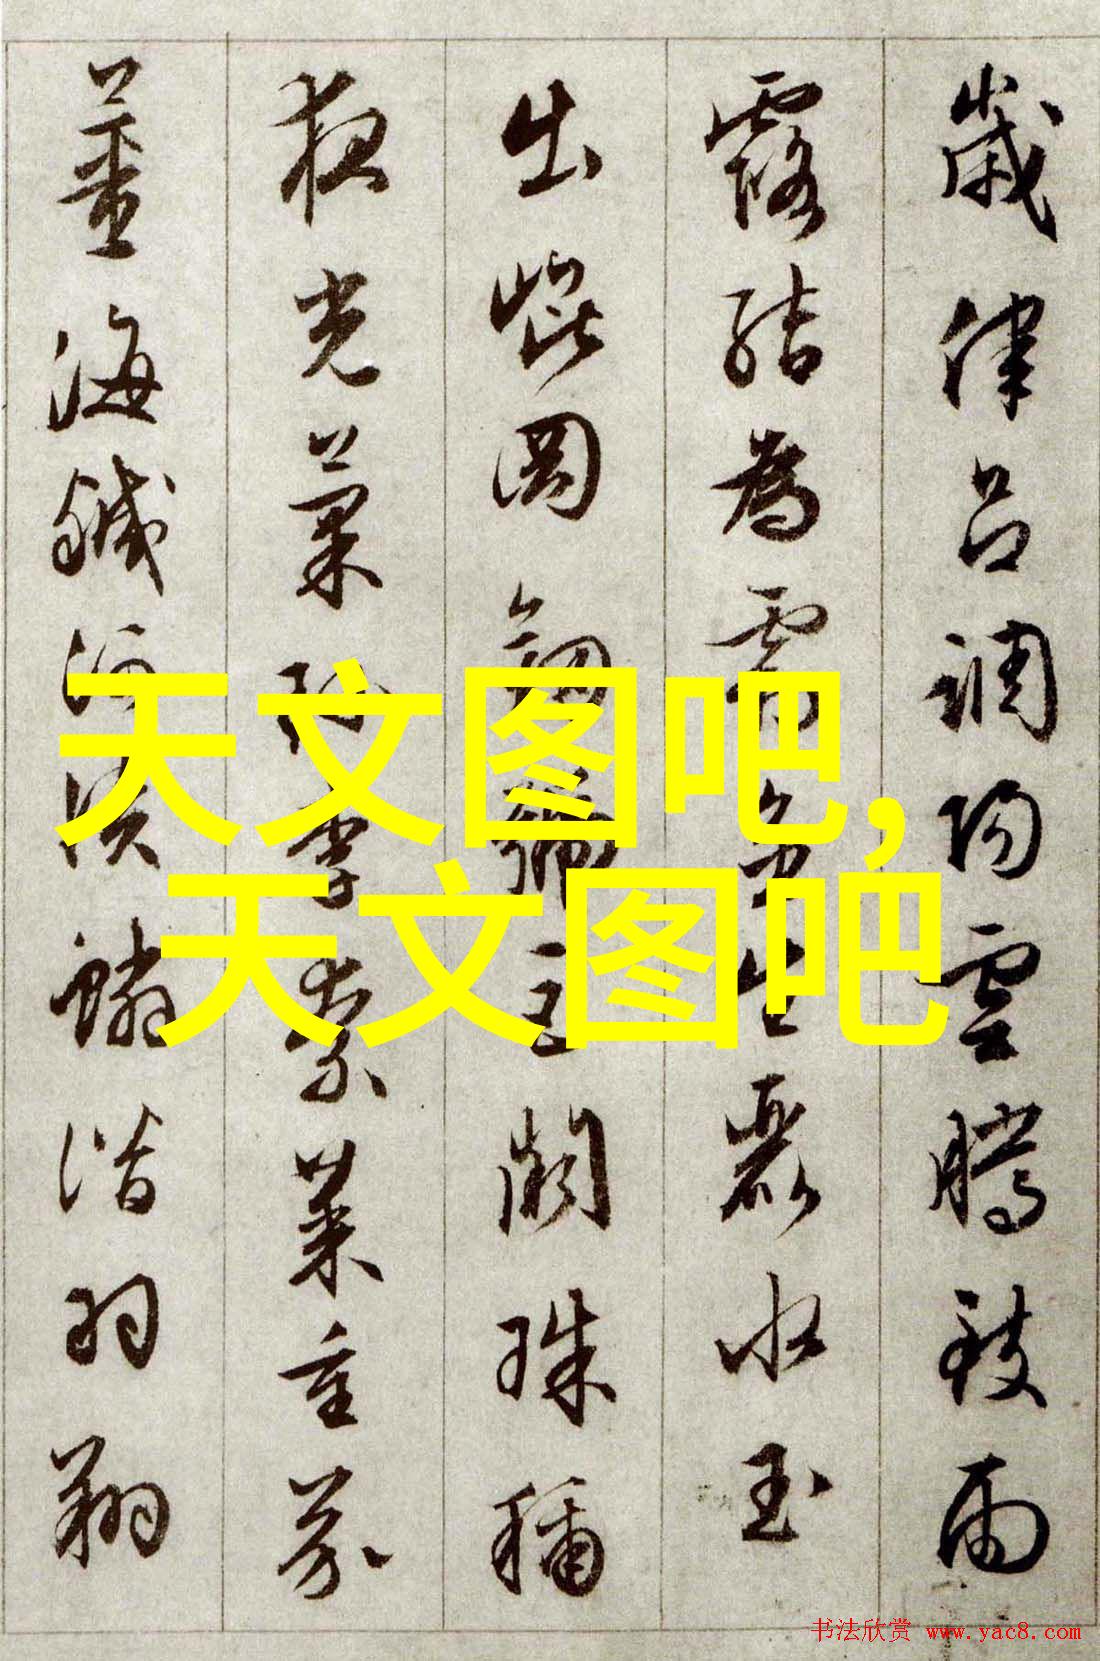 歲律呂調陽雲騰致雨
露結為霜金生麗水玉
出崐岡劍號巨闕珠稱
夜光菓珍李柰菜重芥
薑海鹹河淡鱗潜羽翔
天文图吧,
天文图吧
书法欣赏 www.yac8.com